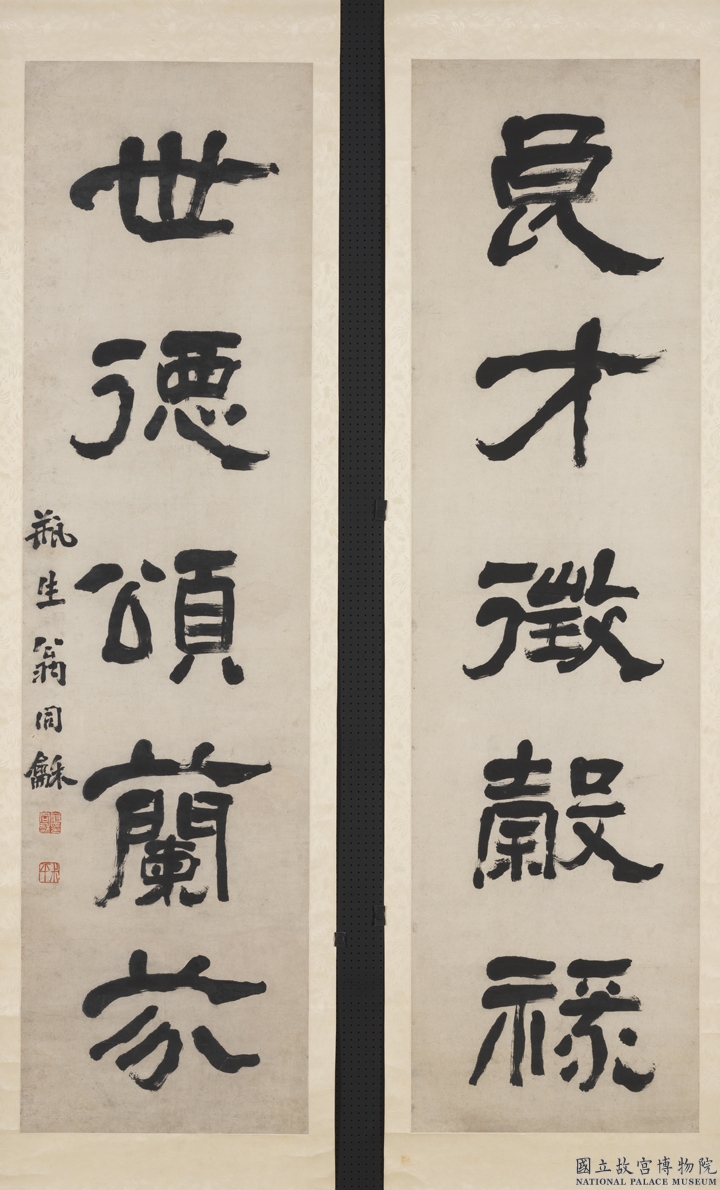 良才徵穀祿
世德頌蘭芬
瓶生翁同龢
國立故宮博物院
NATIONAL PALACE MUSEUM